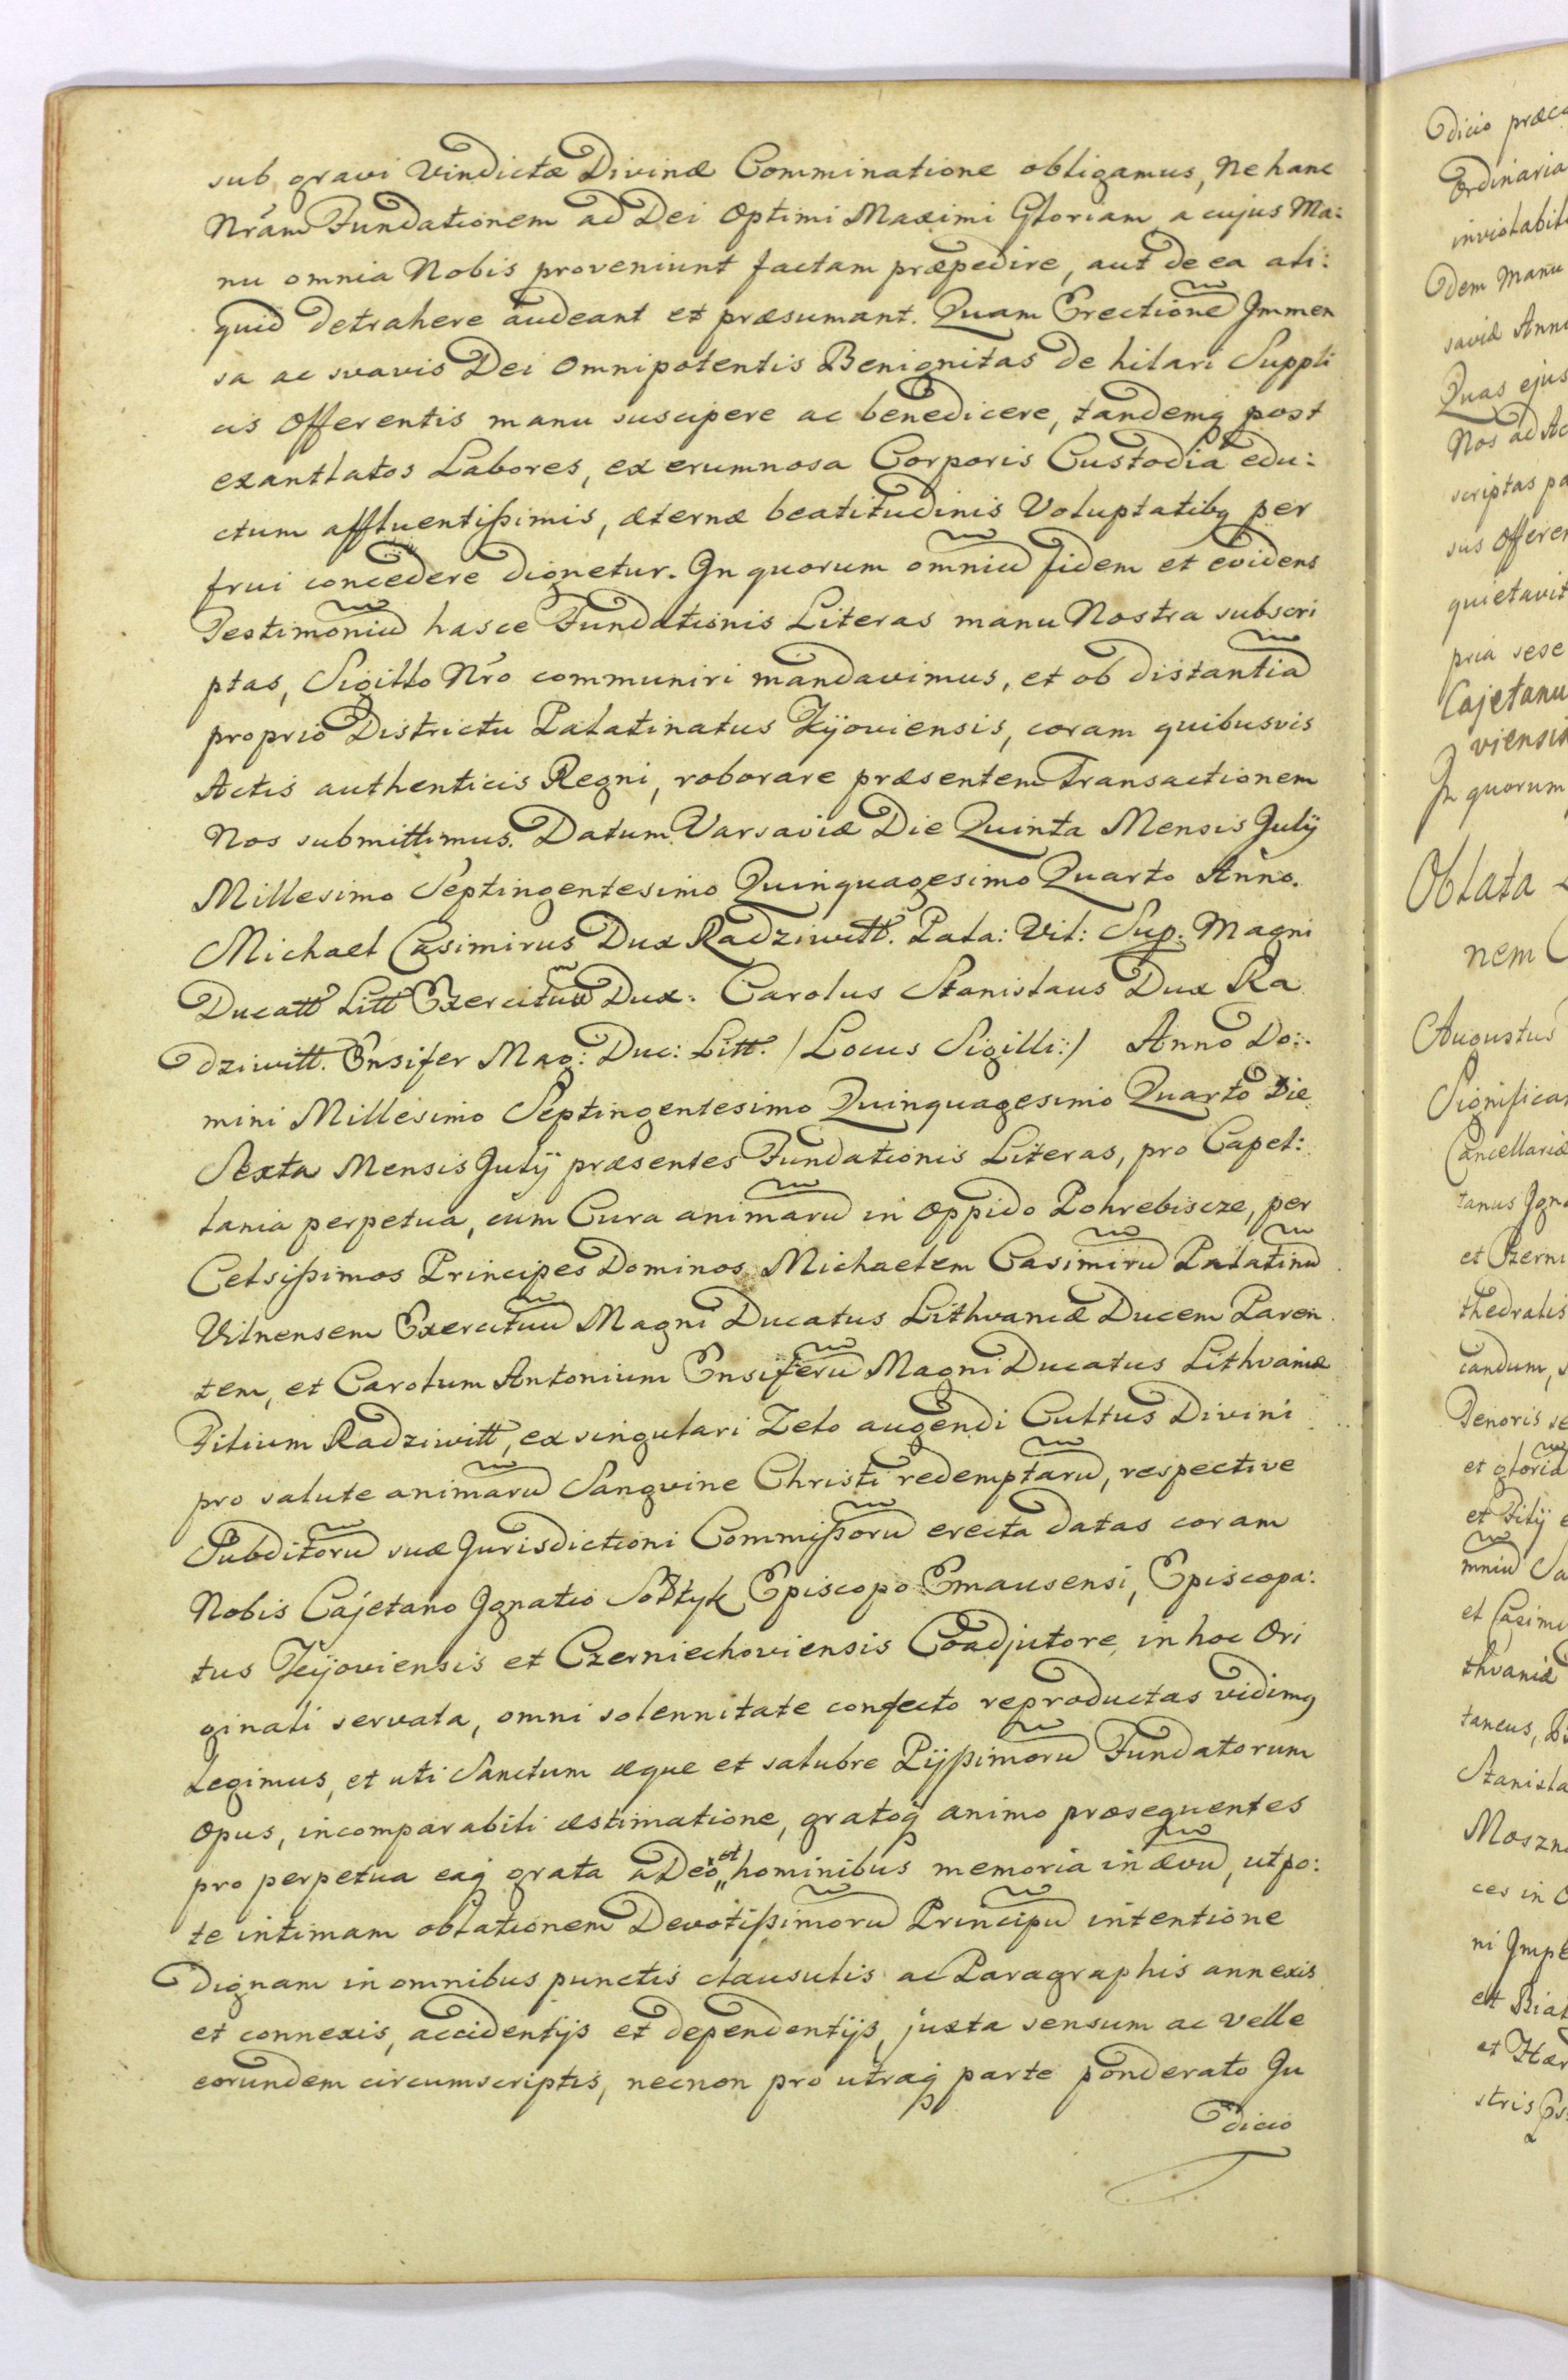 sub gravi Vindictæ Divinæ Comminatione obligamus, ne hanc
Nr̃am Fundationem ad Dei Optimi Maximi Gloriam a cujus Ma:
nu omnia Nobis proveniunt factam præpedire, aut de ea ali:
quid detrahere audeant et præsumant. Quam Erectionẽ Immen
sa ac svavis Dei Omnipotentis Benignitas de hilari Suppli
cis Offerentis manu suscipere ac benedicere, tandemq post
exantlatos Labores, ex erumnosa Corporis Custodia edu:
ctum affluentißimis, æternæ beatitudinis Voluptatibq per
frui concedere dignetur. In quorum omniũ fidem et evidens
Testimoniũ hasce Fundationis Literas manu Nostra subscri
ptas, Sigillo Nr̃o communiri mandavimus, et ob distantiã
proprio Districtu Palatinatus Kijoviensis, coram quibusvis
Actis authenticis Regni, roborare præsentem Transactionem
Nos submittimus. Datum Varsaviæ Die Quinta Mensis Julÿ
Millesimo Septingentesimo Quinquagesimo Quarto Anno.
Michael Casimirus Dux Radziwiłł. Pala: Vil: Sup. Magni
Ducatt Litt Exercituũ Dux. Carolus Stanislaus Dux Ra
dziwiłł. Ensifer Mag: Duc: Litt. /Locus Sigilli:/ Anno Do:
mini Millesimo Septingentesimo Quinquagesimo Quarto Die
Sexta Mensis Julÿ præsentes Fundationis Literas, pro Capel:
lania perpetua, cum Cura animarũ in Oppido Pohrebiscze, per
Celsißimos Principes Dominos Michaelem Casimirũ Palatinũ
Vilnensem Exercituũ Magni Ducatus Lithvaniæ Ducem Paren
tem, et Carolum Antonium Ensiferũ Magni Ducatus Lithvaniæ
Filium Radziwiłł, ex singulari Zelo augendi Cultus Divini
pro salute animarũ Sangvine Christi redemptarũ, respective
Subditorũ suæ Jurisdictioni Commißorũ erecta datas coram
Nobis Cajetano Ignatio Sołtyk Episcopo Emausensi, Episcopa:
tus Kijoviensis et Czerniechoviensis Coadjutore, in hoc Ori
ginali servata, omni solennitate confecto reproductas vidimq
Legimus, et uti Sanctum æque et salubre Pijßimorũ Fundatorum
Opus, incomparabili æstimatione, gratoq animo prosequentes
pro perpetua eaq grata a Deo et hominibus memoria in ævũ, utpo:
te intimam oblationem Devotißimorũ Principũ intentione
Dignam in omnibus punctis clausulis ac Paragraphis annexis
et connexis, accidentijs et dependentijs, juxta sensum ac velle
eorundem circumscriptis, necnon pro utraq parte ponderato Ju
dicio
dicio
Ordinaria
dem Manu
Quas ejus
quietavit
pria sese
Cajetanu
viensis
In quorum
Oblata
nem
Augustus
Cancellariæ
thedralis
candum,
Tenoris
thvaniæ
taneus,
ces in